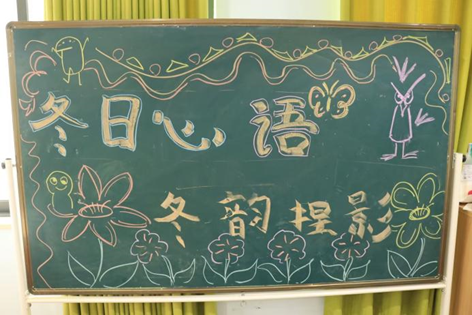 冬日心语
冬韵捏影